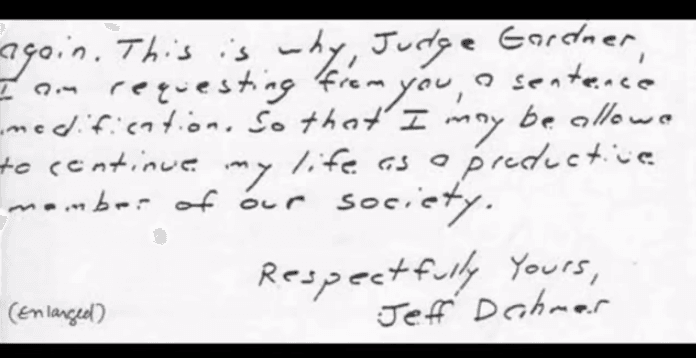 again. This is why, Judge Gardner,
I am requesting from you, a sentence
modification. So that I may be allowe
to continue my life as a productive
member of our society.
Respectfully Yours,
Jeff Dahmer
(Enlarged)